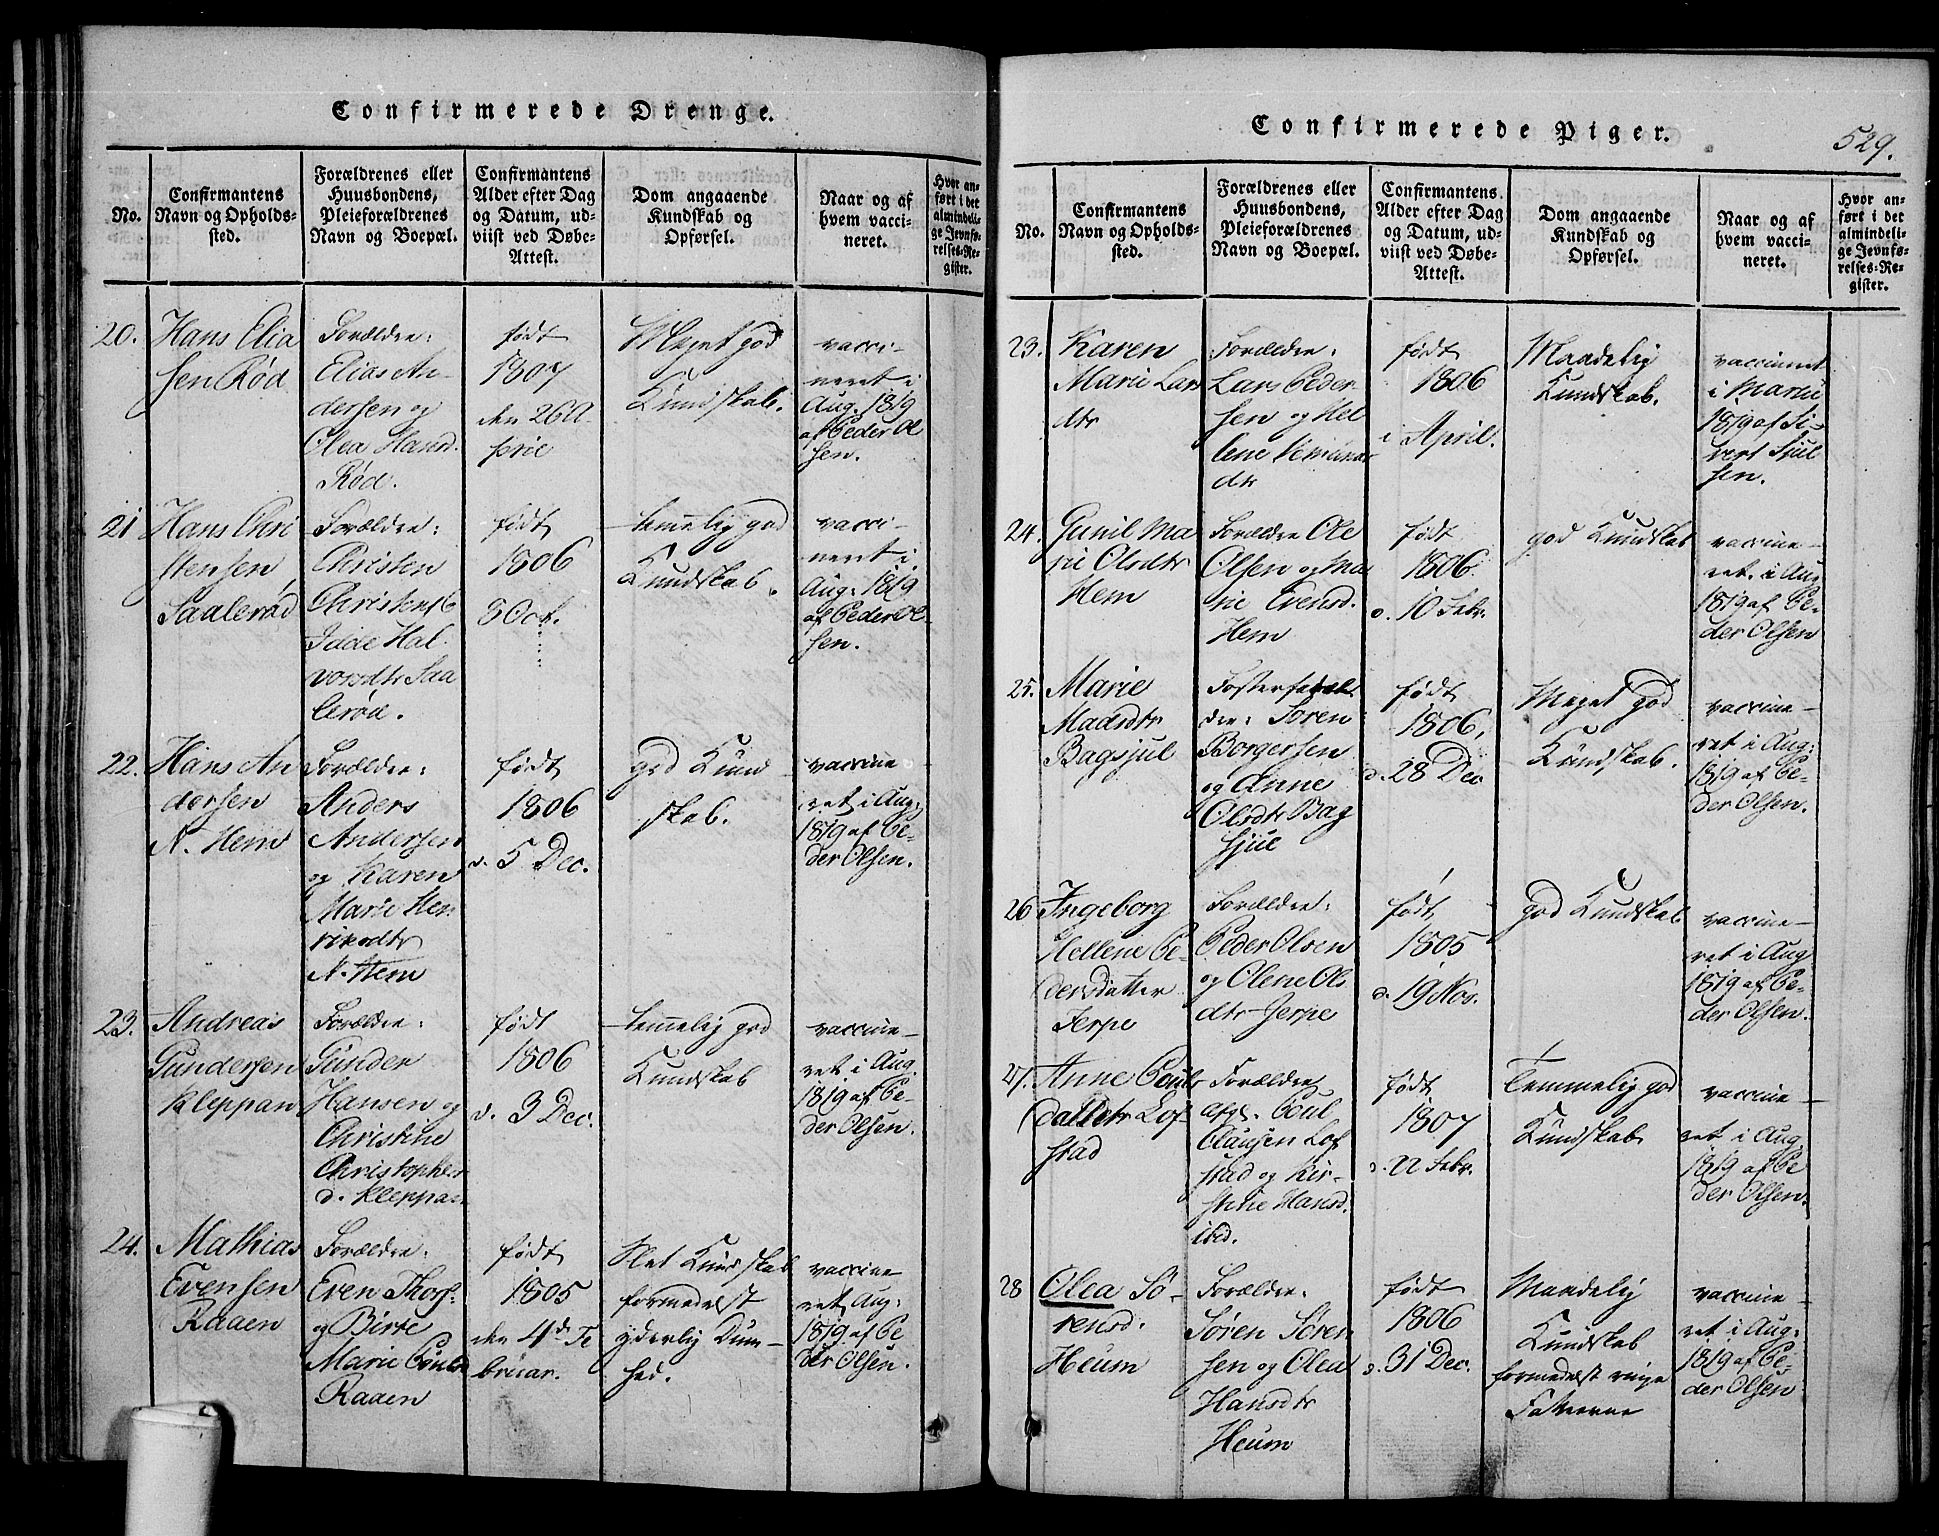 Confirmerede Drenge.
No.
Confirmantens
Navn og Opholds-
sted.
Forældrenes eller
Huusbondens,
Pleieforældrenes
Navn og Boepæl.
Confirmantens
Alder efter Dag
og Datum, ud-
viist ved Døbe-
Attest.
Dom angaaende
Kundskab og
Opførsel.
Naar og af
hvem vacci-
neret.
Hvor an-
ført i det
almindeli-
ge Jevnfø-
relses-Re-
gister.
20.
Hans Elia
sen Rød
Forældre:
Elias An-
dersen og
Olea Hansd.
Rød.
født
1807
den 26 A-
pril
Meget god
Kundskab.
vacci-
neret i
Aug. 1819
af Peder Ol
sen.
21
Hans Chri
stensen
Saalerød
Forældre:
Christen
Christens
Hal-
vorsdtr Saa
lerød.
født
1806
3 Oct.
temmelig god
Kundskab.
vacci-
neret i
Aug. 1819
af Peder Ol-
sen.
22.
Hans An
dersen
N. Hem
Forældre:
Anders
Andersen
og Karen
Marie Hen
riksdtr
N. Hem
født
1806
d. 5 Dec.
god Kund
skab.
vaccine
ret i Aug.
1819 af Pe-
der Olsen.
23.
Andreas
Gundersen
Kleppan
Forældre:
Gunder
Hansen og
Christine
Christopher
d. Kleppan
født
1806
d. 3 Dec.
temmelig god
Kundskab
vaccine-
ret i Aug.
1819 af Pe-
der Olsen.
24.
Mathias
Evensen
Raaen
Forældre:
Even Thors-
og Birte
Marie Pouls
Raaen
født
1805
den 4de Fe
bruar.
Slet Kundskab
formedelst
yderlig Dum-
hed.
vaccine
ret, Aug.
1819 af Pe
der Olsen.
Confirmerede Piger.
529.
No.
Confirmantens
Navn og Opholds-
sted.
Forældrenes eller
Huusbondens,
Pleieforældrenes
Navn og Boepæl.
Confirmantens.
Alder efter Dag
og Datum, ud-
viist ved Døbe-
Attest.
Dom angaaende
Kundskab og
Opførsel.
Naar og af
hvem vacci-
neret.
Hvor an-
ført i det
almindeli-
ge Jevnfø-
relses-Re-
gister.
23.
Karen
Marie Lars
dtr
Forældre:
Lars Peder
sen og Hel
lene
dtr
født
1806
i April.
Maadelig
Kundskab.
vaccineret
i
1819 af Si-
vert
sen.
24.
Gunil Ma
rie Olsdtr
Hem
Forældre Ole
Olsen og Ma
rie Evensd.
Hem
født
1806
d. 10 Febr.
god Kundskab
vaccine-
ret. i Aug
1819 af Pe-
der Olsen
25.
Marie
Madsdtr
Bagsjul
Fosterforæl
dre: Søren
Borgersen
og Anne
Olsdtr Bag
sjul
født
1806,
d. 28 Dec
Meget god
Kundskab.
vaccine-
ret i Aug:
1819 af Pe-
der Olsen.
26
Ingeborg
Hellene Pe-
dersdatter
Jerpe
Forældre:
Peder Olsen
og Olene Ols
dtr Jerpe
født
1805
d. 19 Nov.
god Kundskab
vaccine-
ret i Aug
1819 af Pe-
der Olsen.
27.
Anne Pouls
datter Lof-
stad
Forældre
afgl. Poul
Clausen Lof
stad og Kir-
stine Hansd.
ibid.
født
1807
d. 22 Febr.
Temmelig god
Kundskab
vaccine-
ret i Aug.
1819 af Pe
der Olsen.
28
Olea Sø-
rensd.
Heum
Forældre:
Søren Sören
sen og Olea
Hansdtr
Heum
født
1806
d. 31 Dec.
Maadelig
Kundskab
formedelst ringe
vaccine-
ret i Aug:
1819 af Pe-
der Olsen